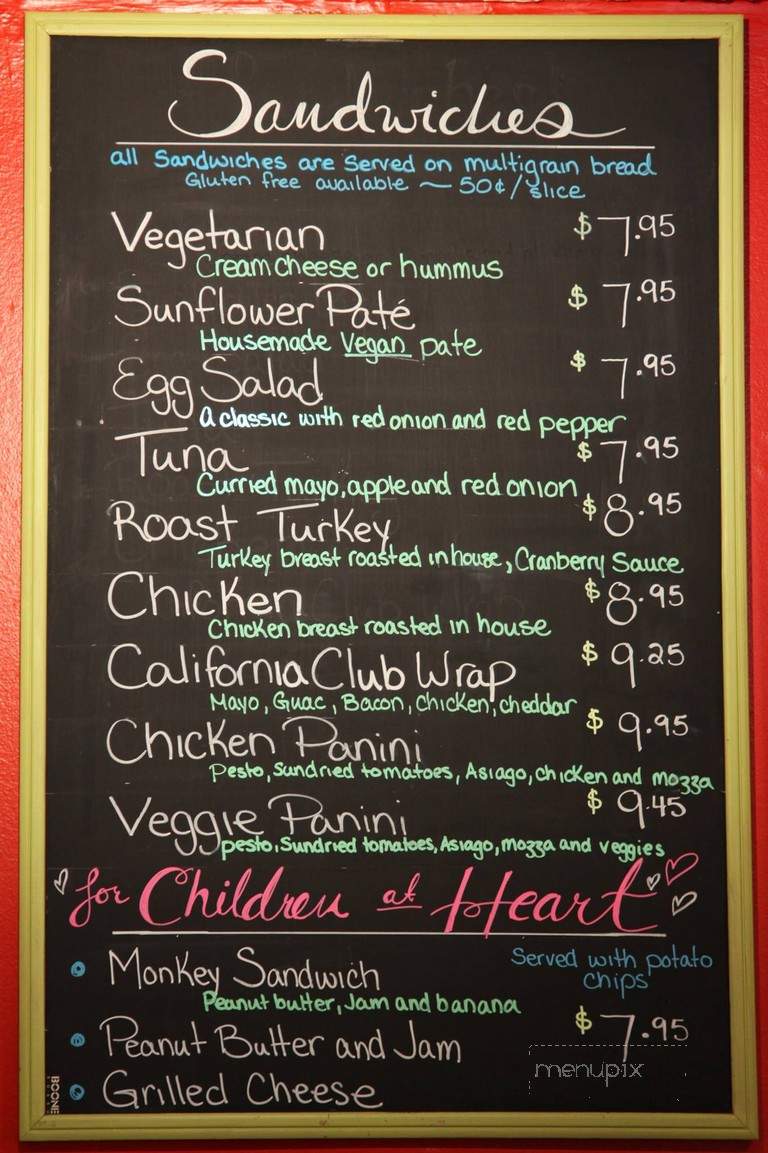 Sandwiches
all Sandwiches are Served on multigrain bread
Gluten free available ~ 50¢/slice
Vegetarian $7.95
Cream cheese or hummus
Sunflower Paté $7.95
Housemade Vegan pate
Egg Salad $7.95
A classic with red onion and red pepper
Tuna $7.95
Curried mayo, apple and red onion
Roast Turkey $8.95
Turkey breast roasted in house, Cranberry Sauce
Chicken $8.95
Chicken breast roasted in house
California Club Wrap $9.25
Mayo, Guac, Bacon, Chicken, cheddar
Chicken Panini $9.95
Pesto, Sundried tomatoes, Asiago, chicken and mozza
Veggie Panini $9.45
pesto, Sundried tomatoes, Asiago, mozza and veggies
for Children at Heart
Served with potato
chips
Monkey Sandwich
Peanut butter, Jam and banana
$7.95
Peanut Butter and Jam
Grilled Cheese
menupix
BOONE